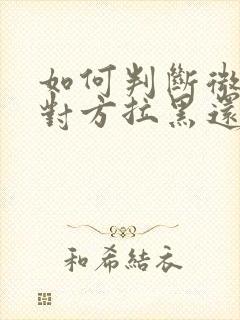 如何判斷微
對方拉黑還
和希結衣